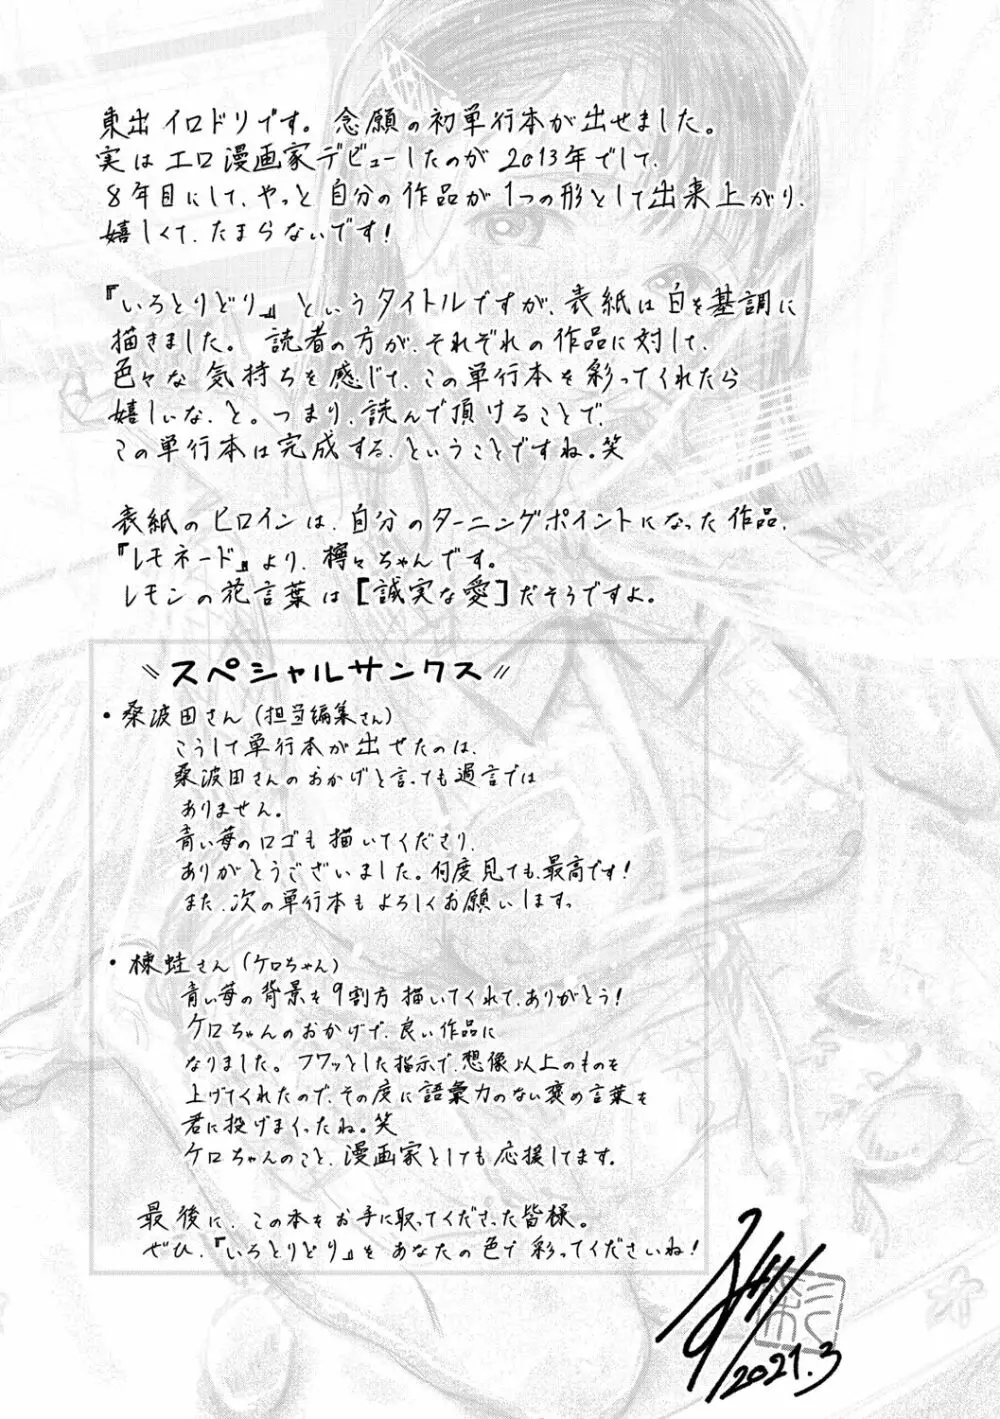 東出イロドリです。念願の初単行本が出せました。
実はエロ漫画家デビューしたのが2013年でして、
8年目にして、やっと自分の作品が1つの形として出来上がり、
嬉しくて、たまらないです!
『いろとりどり』というタイトルですが、表紙は白を基調に
描きました。読者の方が、それぞれの作品に対して、
色々な気持ちを感じて、この単行本を彩ってくれたら
嬉しいな、と。つまり、読んで頂けることで、
この単行本は完成する、ということですね。笑
表紙のヒロインは、自分のターニングポイントになった作品、
『レモネード』より、檸々ちゃんです。
レモンの花言葉は[誠実な愛]だそうですよ。
\\スペシャルサンクス//
・桑波田さん(担当編集さん)
こうして単行本が出せたのは、
桑波田さんのおかげと言っても過言では
ありません。
青い苺のロゴも描いてくださり、
ありがとうございました。何度見ても、最高です!
また、次の単行本もよろしくお願いします。
・棟蛙さん(ケロちゃん)
青い苺の背景を9割方描いてくれて、ありがとう!
ケロちゃんのおかげで、良い作品に
なりました。フワッとした指示で、想像以上のものを
上げてくれたので、その度に語彙力のない褒め言葉を
君に投げまくったね。笑
ケロちゃんのこと、漫画家としても応援してます。
最後に、この本をお手に取ってくださった皆様。
ぜひ、『いろとりどり』をあなたの色で彩ってくださいね!
2021.3